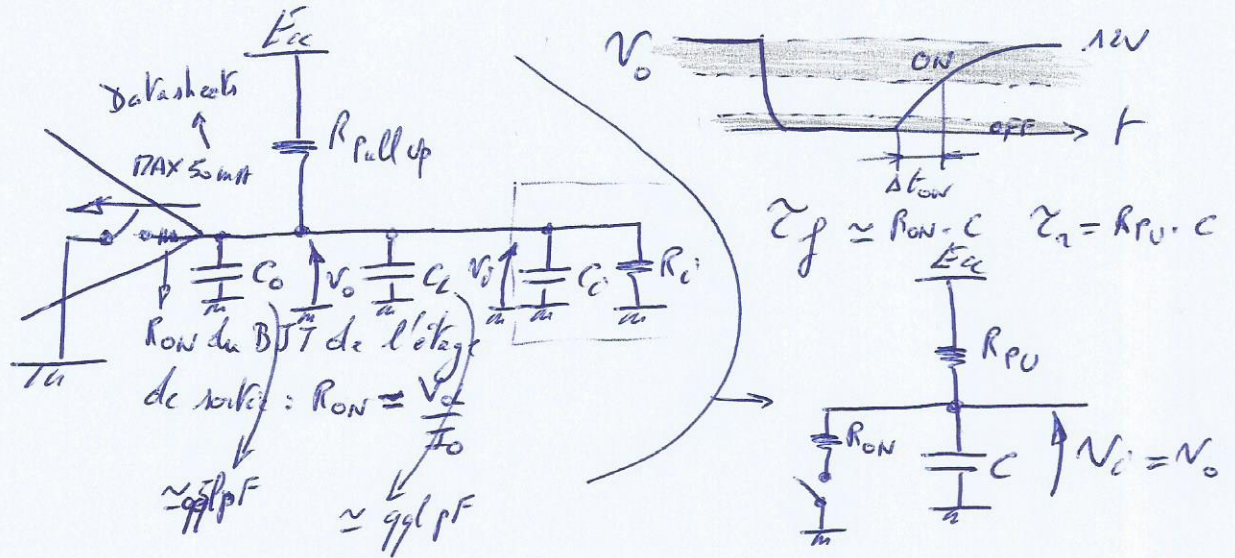 Ecc
Datasheets
MAX 50 mA
R Pull up
C₀
V₀
C_L
V_i
C_i
R_i
R_ON du BJT de l'étage
de sortie : R_ON ≃ V₀/I₀
≃ qql pF
≃ qql pF
V₀
ON
12V
OFF
t
Δt_ON
τ_f ≃ R_ON · C τ_r = R_PU · C
Ecc
R_PU
R_ON
C
V_i = V₀